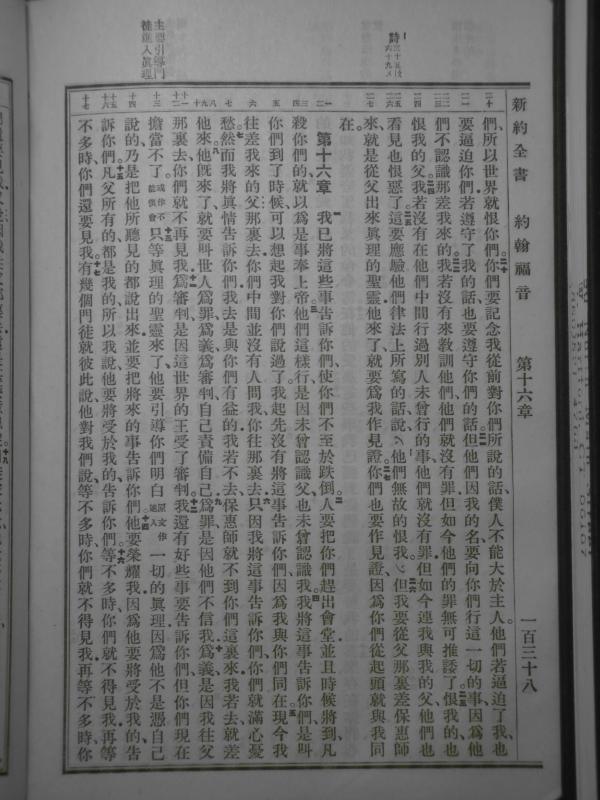 新約全書　約翰福音　第十六章　一百三十八
們、所以世界就恨你們你們要記念我從前對你們所說的話僕人不能大於主人他們若逼迫了我也
要逼迫你們若遵守了我的話也要遵守你們的話但他們因我的名要向你們行這一切的事因為他
們不認識那差我來的我若沒有來教訓他們他們就沒有罪但如今他們的罪無可推諉了恨我的也
恨我的父我若沒有在他們中間行過別人未曾行的事他們就沒有罪但如今連我與我的父他們也
看見也恨惡了這要應驗他們律法上所寫的話說他們無故的恨我但我要從父那裏差保惠師
來就是從父出來眞理的聖靈他來了就要爲我作見證你們也要作見證因為你們從起頭就與我同
在。
第十六章　我已將這些事告訴你們使你們不至於跌倒人要把你們趕出會堂並且時候將到凡
殺你們的就以為是事奉上帝他們這樣行是因未曾認識父也未曾認識我我將這事告訴你們是叫
你們到了時候可以想起我對你們說過了我起先沒有將這事告訴你們因為我與你們同在現今我
往差我來的父那裏去你們中間並沒有人問我你往那裏去只因我將這事告訴你們你們就滿心憂
愁然而我將眞情告訴你們我去是與你們有益的我若不去保惠師就不到你們這裏來我若去就差
他來他既來了就要叫世人爲罪爲義爲審判自己責備自己爲罪是因他們不信我爲義是因我往父
那裏去你們就不再見我爲審判是因這世界的王受了審判我還有好些事要告訴你們但你們現在
擔當不了或作不能領會只等眞理的聖靈來了他要引導你們明白原文作進入一切的眞理因爲他不是憑自己
說的乃是把他所聽見的都說出來並要把將來的事告訴你們他要榮耀我因爲他要將受於我的告
訴你們凡父所有的都是我的所以我說他要將受於我的告訴你們等不多時你們就不得見我再等
不多時你們還要見我有幾個門徒就彼此說他對我們說等不多時你們就不得見我再等不多時你
主要引導門
徒進入眞理